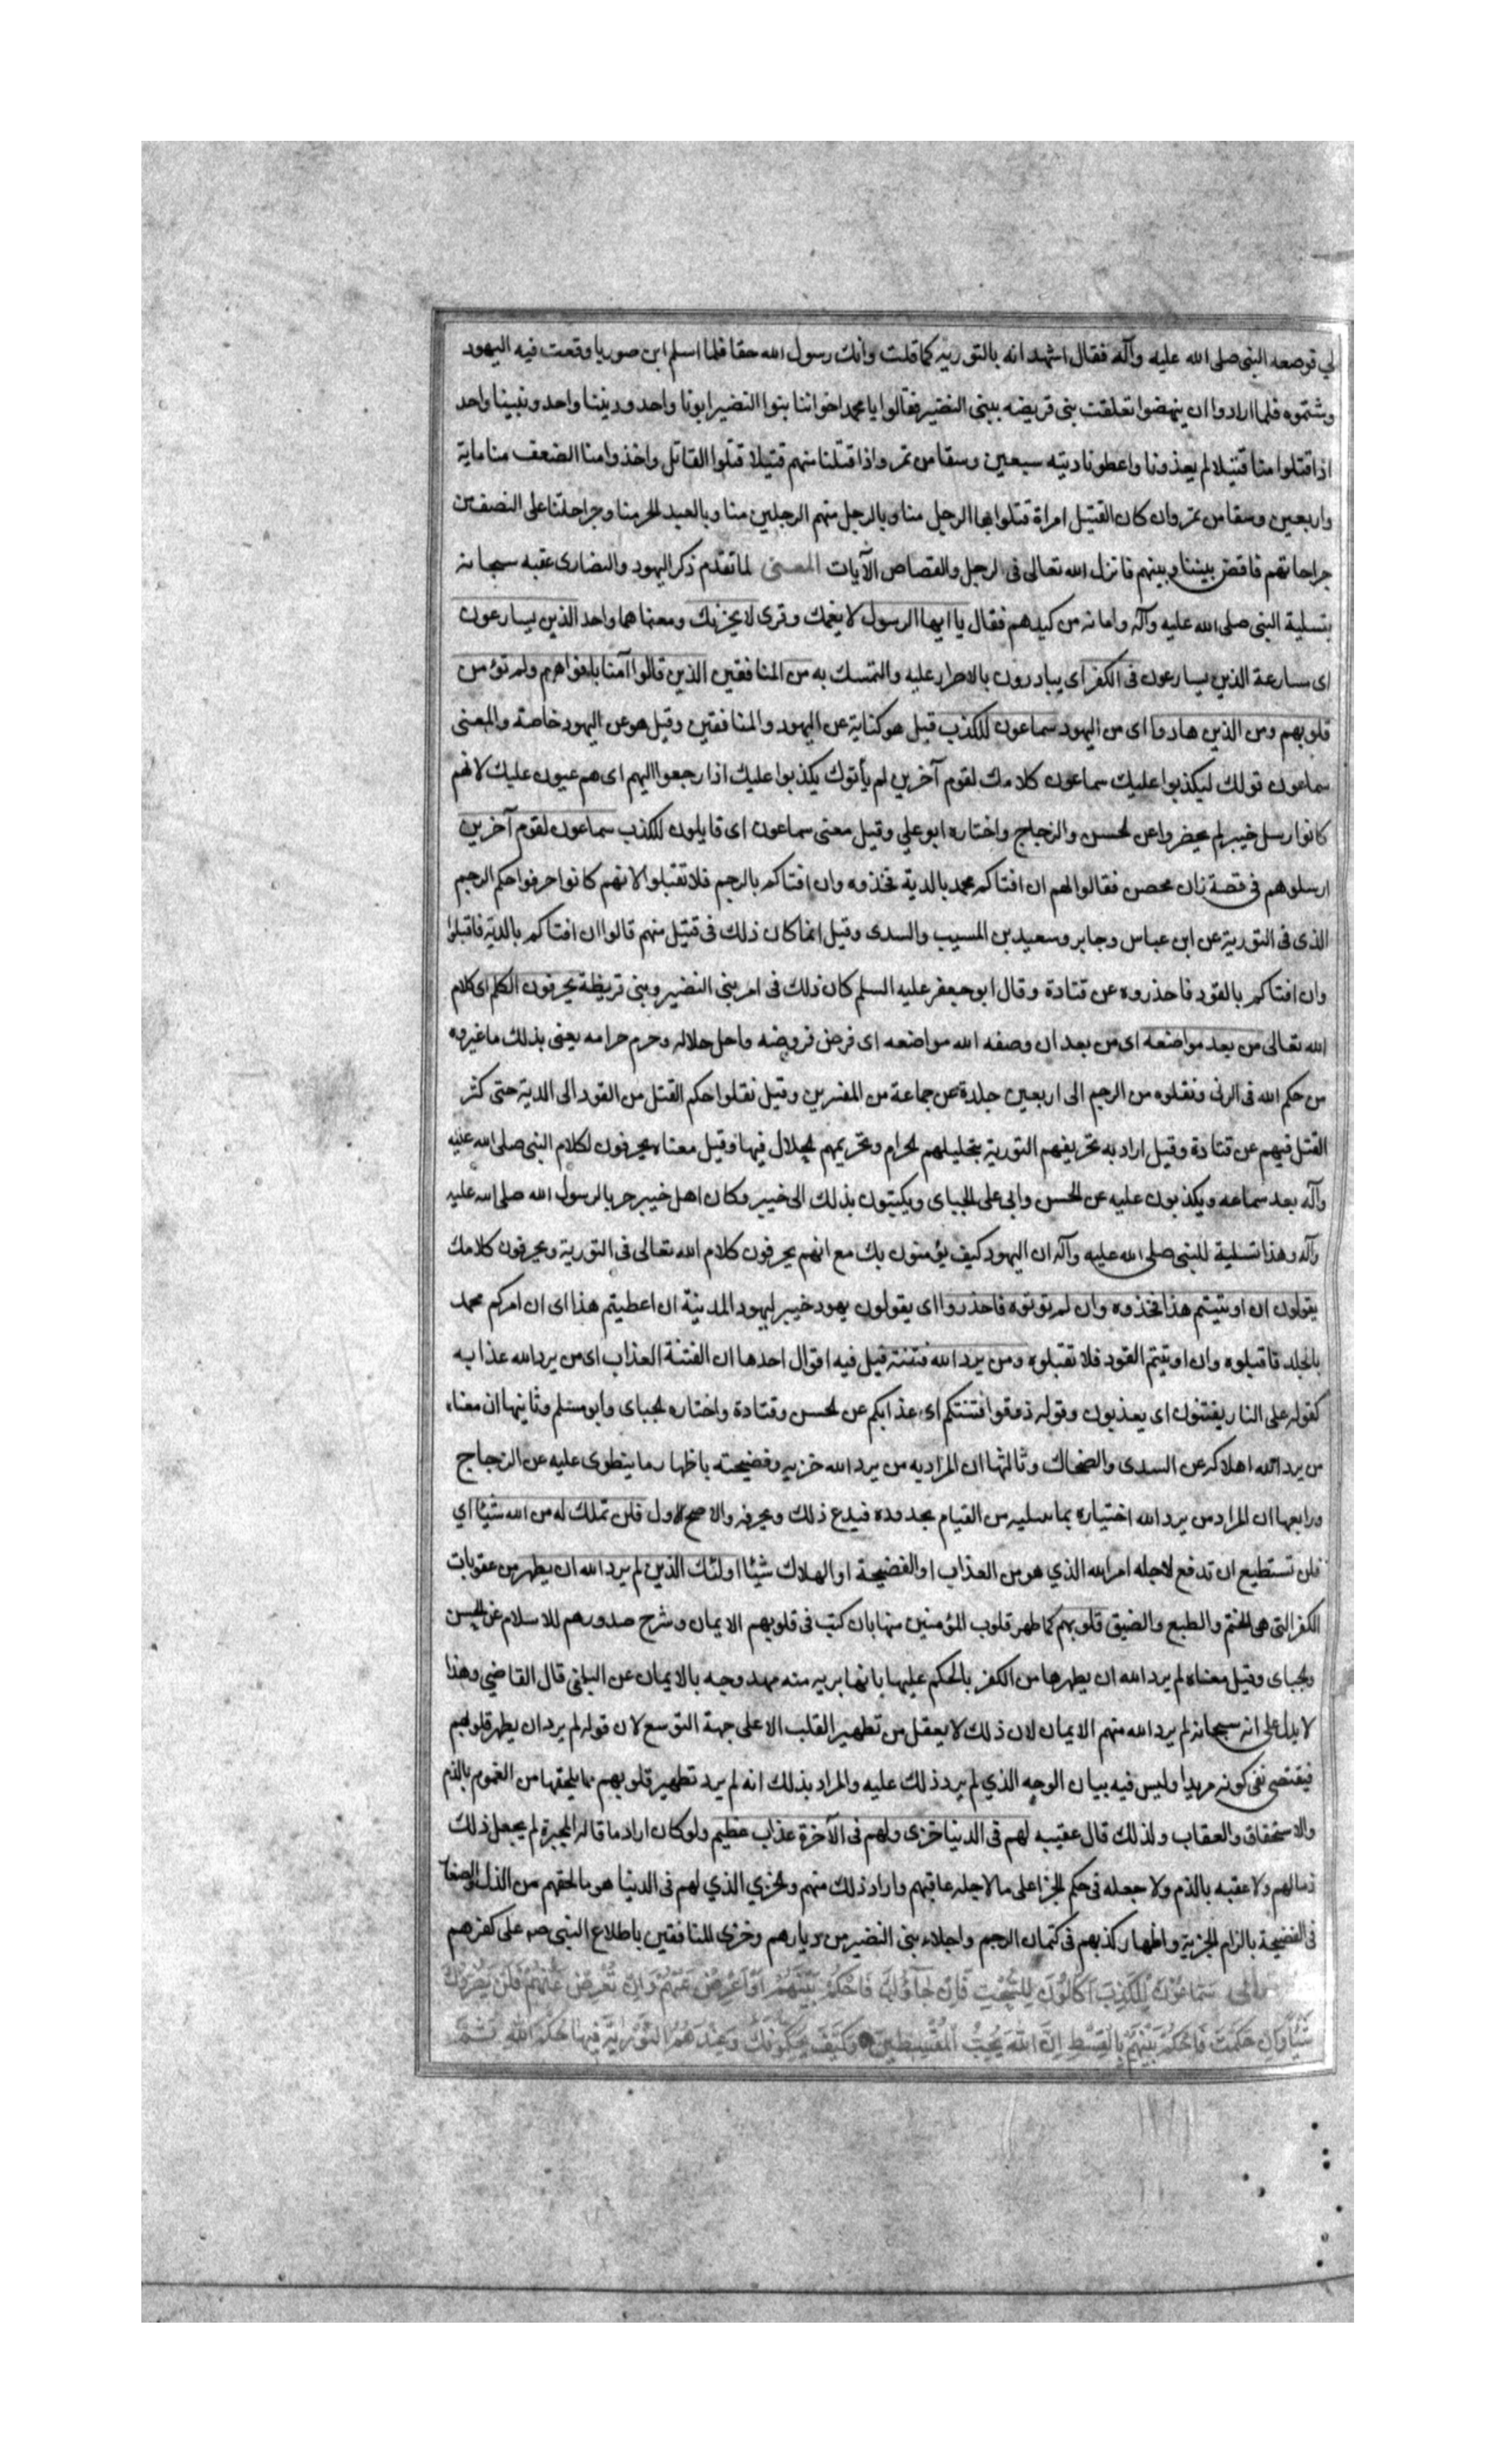 لي فوصفه النبى صلى الله عليه وآله فقال اشهد انه بالتوريه كما قلت وانك رسول الله حقا فلما اسلم ابن صوريا وقعت فيه اليهود
وشتموه فلما ارادوا ان ينهضوا تعلقت بنى قريضه ببنى النضير فقالوا يا محمد اخواننا بنوا النضير ابونا واحد وديننا واحد ونبينا واحد
اذا قتلوا منا قتيلا لم يعذونا واعطونا ديته سبعين وسقا من تمر واذا قتلنا منهم قتيلا قتلوا القاتل واخذوا منا الضعف منا ماية
واربعين وسقا من تمر وان كان القتيل امراة قتلوا بها الرجل منا وبالرجل منهم الرجلين منا وبالعبد الحر منا وجراحتنا على النصف من
جراحاتهم فاقض بيننا وبينهم فانزل الله تعالى فى الرجل والقصاص الآيات المعنى لما تقدم ذكر اليهود والنصارى عقبه سبحانه
بتسلية النبى صلى الله عليه وآله وامانه من كيدهم فقال يا ايها الرسول لا يغمك وقرى لا يحزنك ومعناهما واحد الذين يسارعون
اى مسارعة الذين يسارعون فى الكفر اى يبادرون بالاصرار عليه والتمسك به من المنافقين الذين قالوا آمنا بافواههم ولم تؤمن
قلوبهم ومن الذين هادوا اى من اليهود سماعون للكذب قيل هو كناية عن اليهود والمنافقين وقيل هو عن اليهود خاصة والمعنى
سماعون قولك ليكذبوا عليك سماعون كلامك لقوم آخرين لم يأتوك يكذبوا عليك اذا رجعوا اليهم اى هم عيون عليك لانهم
كانوا رسل خيبر لم يحضروا عن الحسن والزجاج واختاره ابو علي وقيل معنى سماعون اى قايلون للكذب سماعون لقوم آخرين
ارسلوهم فى قصة زان محصن فقالوا لهم ان افتاكم محمد بالدية فخذوه وان افتاكم بالرجم فلا تقبلوا لانهم كانوا حرفوا حكم الرجم
الذى فى التورية عن ابن عباس وجابر وسعيد بن المسيب والسدى وقيل انما كان ذلك فى قتيل منهم قالوا ان افتاكم بالدية فاقبلوا
وان افتاكم بالقود فاحذروه عن قتادة وقال ابو جعفر عليه السلم كان ذلك فى امر بنى النضير وبنى قريظة يحرفون الكلم اى كلام
الله تعالى من بعد مواضعه اى من بعد ان وصفه الله مواضعه اى فرض فروضه واحل حلاله وحرم حرامه يعنى بذلك ما غيروه
من حكم الله فى الزنى ونقلوه من الرجم الى اربعين جلدة عن جماعة من المفسرين وقيل نقلوا حكم القتل من القود الى الدية حتى كثر
القتل فيهم عن قتادة وقيل اراد به تحريفهم التورية بتحليلهم الحرام وتحريمهم الحلال فيها وقيل معناه يحرفون لكلام النبى صلى الله عليه
وآله بعد سماعه ويكذبون عليه عن الحسن وابى على الجباى ويكتبون بذلك الى خيبر وكان اهل خيبر حربا لرسول الله صلى الله عليه
وآله وهذا تسلية للنبى صلى الله عليه وآله ان اليهود كيف يؤمنون بك مع انهم يحرفون كلام الله تعالى فى التورية ويحرفون كلامك
يقولون ان اوتيتم هذا فخذوه وان لم توتوه فاحذروا اى يقولون يهود خيبر ليهود المدينة ان اعطيتم هذا اى ان امركم محمد
بالجلد فاقبلوه وان اوتيتم القود فلا تقبلوه ومن يرد الله فتنته قيل فيه اقوال احدها ان الفتنة العذاب اى من يرد الله عذابه
كقوله على النار يفتنون اى يعذبون وقوله ذوقوا فتنتكم اى عذابكم عن الحسن وقتادة واختاره الجباى وابو مسلم وثانيها ان معناه
من يرد الله اهلاكه عن السدى والضحاك وثالثها ان المراد به من يرد الله خزيه وفضيحته باظهار ما ينطوى عليه عن الزجاج
ورابعها ان المراد من يرد الله اختياره بما يبتليه من القيام بحدوده فيدع ذلك ويحرفه والاصح الاول فلن تملك له من الله شيئا اي
فلن تستطيع ان تدفع لاجله امر الله الذي هو من العذاب او الفضيحة او الهلاك شيئا اولئك الذين لم يرد الله ان يطهر من عقوبات
الكفر التى هى الختم والطبع والضيق قلوبهم كما طهر قلوب المؤمنين منها بان كتب فى قلوبهم الايمان وشرح صدورهم للاسلام عن الحسن
والجباى وقيل معناه لم يرد الله ان يطهرها من الكفر بالحكم عليها بانها بريه منه ممدوحة بالايمان عن البلخى قال القاضي وهذا
لا يدل على انه سبحانه لم يرد الله منهم الايمان لان ذلك لا يعقل من تطهير القلب الا على جهة التوسع لان قوله لم يرد ان يطهر قلوبهم
فيقتضى نفى كونه مريدا وليس فيه بيان الوجه الذي لم يرد ذلك عليه والمراد بذلك انه لم يرد تطهير قلوبهم مما يلحقها من الغموم بالذم
والاستخفاف والعقاب ولذلك قال عقيبه لهم فى الدنيا خزى ولهم فى الآخرة عذاب عظيم ولو كان اراد ما قاله المجبرة لم يجعل ذلك
ذما لهم ولا عقبه بالذم ولا جعله فى حكم الجزا على ما لاجله عاقبهم واراد ذلك منهم والخزي الذي لهم فى الدنيا هو ما لحقهم من الذل والصغار
فى الفضيحة بالزام الجزية واظهار كذبهم فى كتمان الرجم واجلاء بنى النضير من ديارهم وخزى المنافقين باطلاع النبى صه على كفرهم
سَمَّاعُوْنَ لِلْكَذِبِ اَكَّالُوْنَ لِلسُّحْتِ فَاِنْ جَآؤُكَ فَاحْكُمْ بَيْنَهُمْ اَوْ اَعْرِضْ عَنْهُمْ وَاِنْ تُعْرِضْ عَنْهُمْ فَلَنْ يَضُرُّوكَ
شَيْئًا وَاِنْ حَكَمْتَ فَاحْكُمْ بَيْنَهُمْ بِالْقِسْطِ اِنَّ اللّٰهَ يُحِبُّ الْمُقْسِطِيْنَ وَكَيْفَ يُحَكِّمُونَكَ وَعِنْدَهُمُ التَّوْرٰيةُ فِيْهَا حُكْمُ اللّٰهِ ثُمَّ